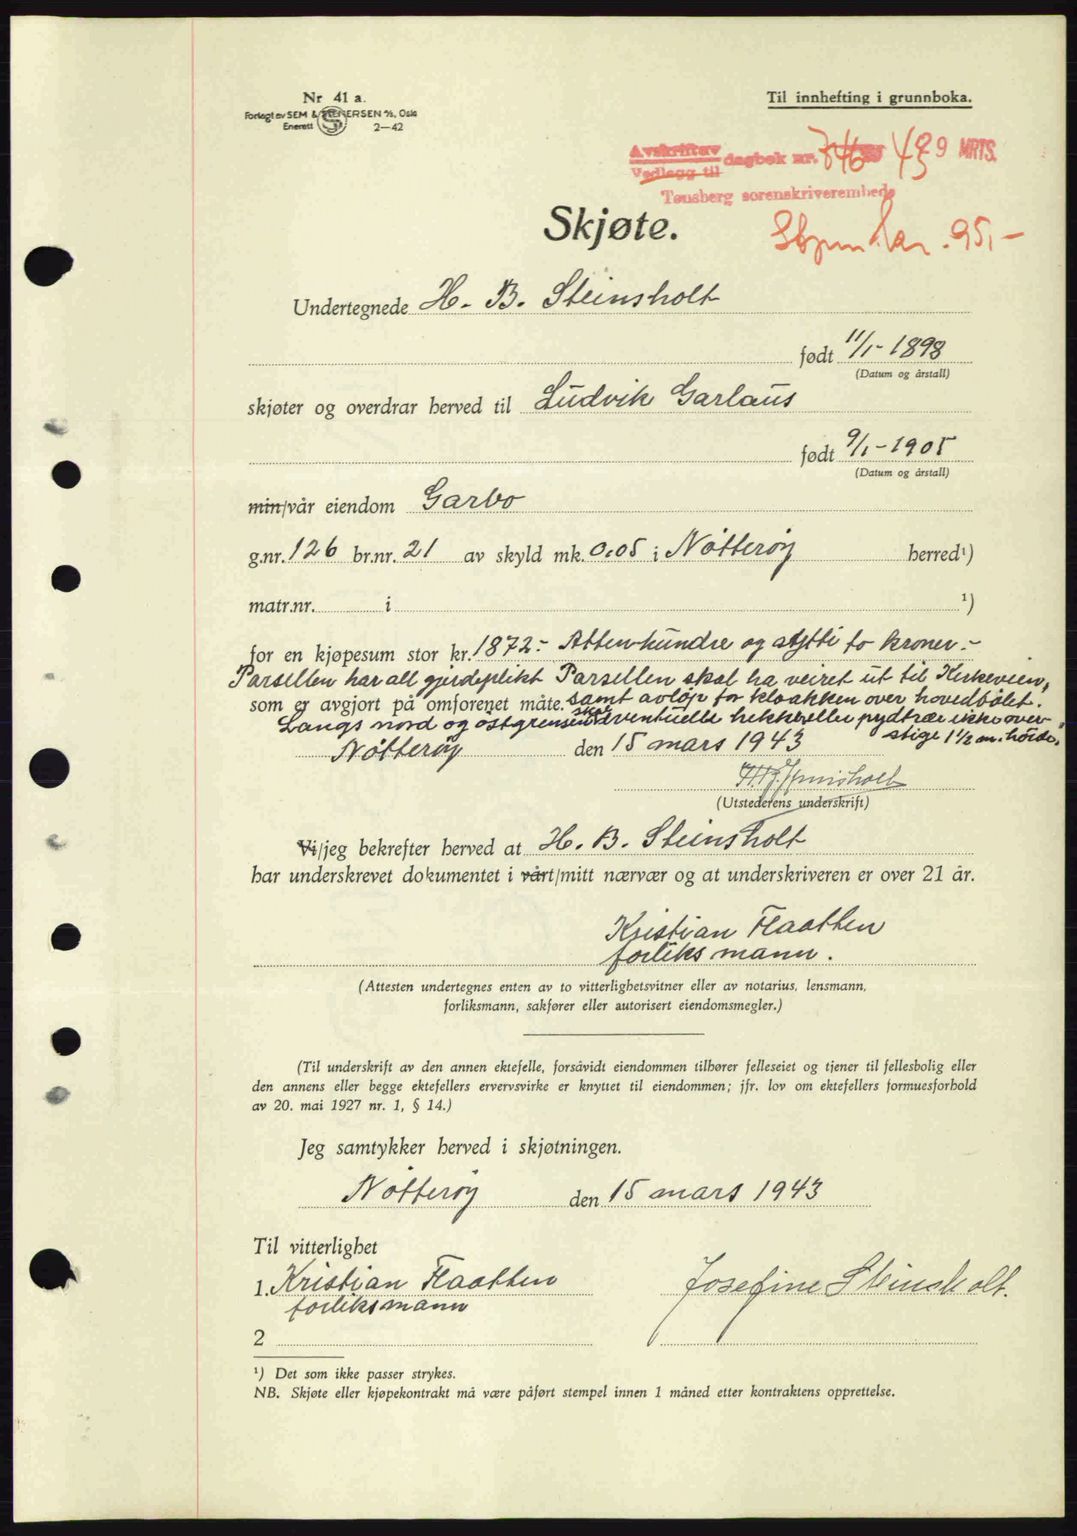 Nr 41 a.
Forlagt av SEM & STENERSEN A/S, Oslo
Enerett 2—42
Til innhefting i grunnboka.
Avskrift av
Vedlegg til dagbok nr. 746 43 29 MRTS.
Tønsberg sorenskriverembede
Skjøte.
95,-
Undertegnede H. B. Steinsholt
født 11/1-1898
(Datum og årstall)
skjøter og overdrar herved til Ludvik Garlaus
født 9/1-1905
(Datum og årstall)
min/vår eiendom Garbo
g.nr. 126 br.nr. 21 av skyld mk. 0.05 i Nötterøy herred¹)
matr.nr. i ¹)
for en kjøpesum stor kr. 1872.- Atten hundre og sytti to kroner.-
Parsellen har all gjerdeplikt Parsellen skal ha veiret ut til Kirkeveien,
som er avgjort på omforenet måte. samt avløp for kloakken over hovedbölet.
Langs nord og østgrensen skal eventuelle hekk eller pydtrær ikke over-
stige 1 1/2 m. höide.
Nötterøy den 15 mars 1943
H.B. Steinsholt
(Utstederens underskrift)
Vi/jeg bekrefter herved at H. B. Steinsholt
har underskrevet dokumentet i vårt/mitt nærvær og at underskriveren er over 21 år.
Kristian Flaatten
forliksmann.
(Attesten undertegnes enten av to vitterlighetsvitner eller av notarius, lensmann,
forliksmann, sakfører eller autorisert eiendomsmegler.)
(Til underskrift av den annen ektefelle, forsåvidt eiendommen tilhører felleseiet og tjener til fellesbolig eller
den annens eller begge ektefellers ervervsvirke er knyttet til eiendommen; jfr. lov om ektefellers formuesforhold
av 20. mai 1927 nr. 1, § 14.)
Jeg samtykker herved i skjøtningen.
Nötterøy den 15 mars 1943
Til vitterlighet
1. Kristian Flaatten
forliksmann
Josefine Steinsholt.
2
¹) Det som ikke passer strykes.
NB. Skjøte eller kjøpekontrakt må være påført stempel innen 1 måned etter kontraktens opprettelse.